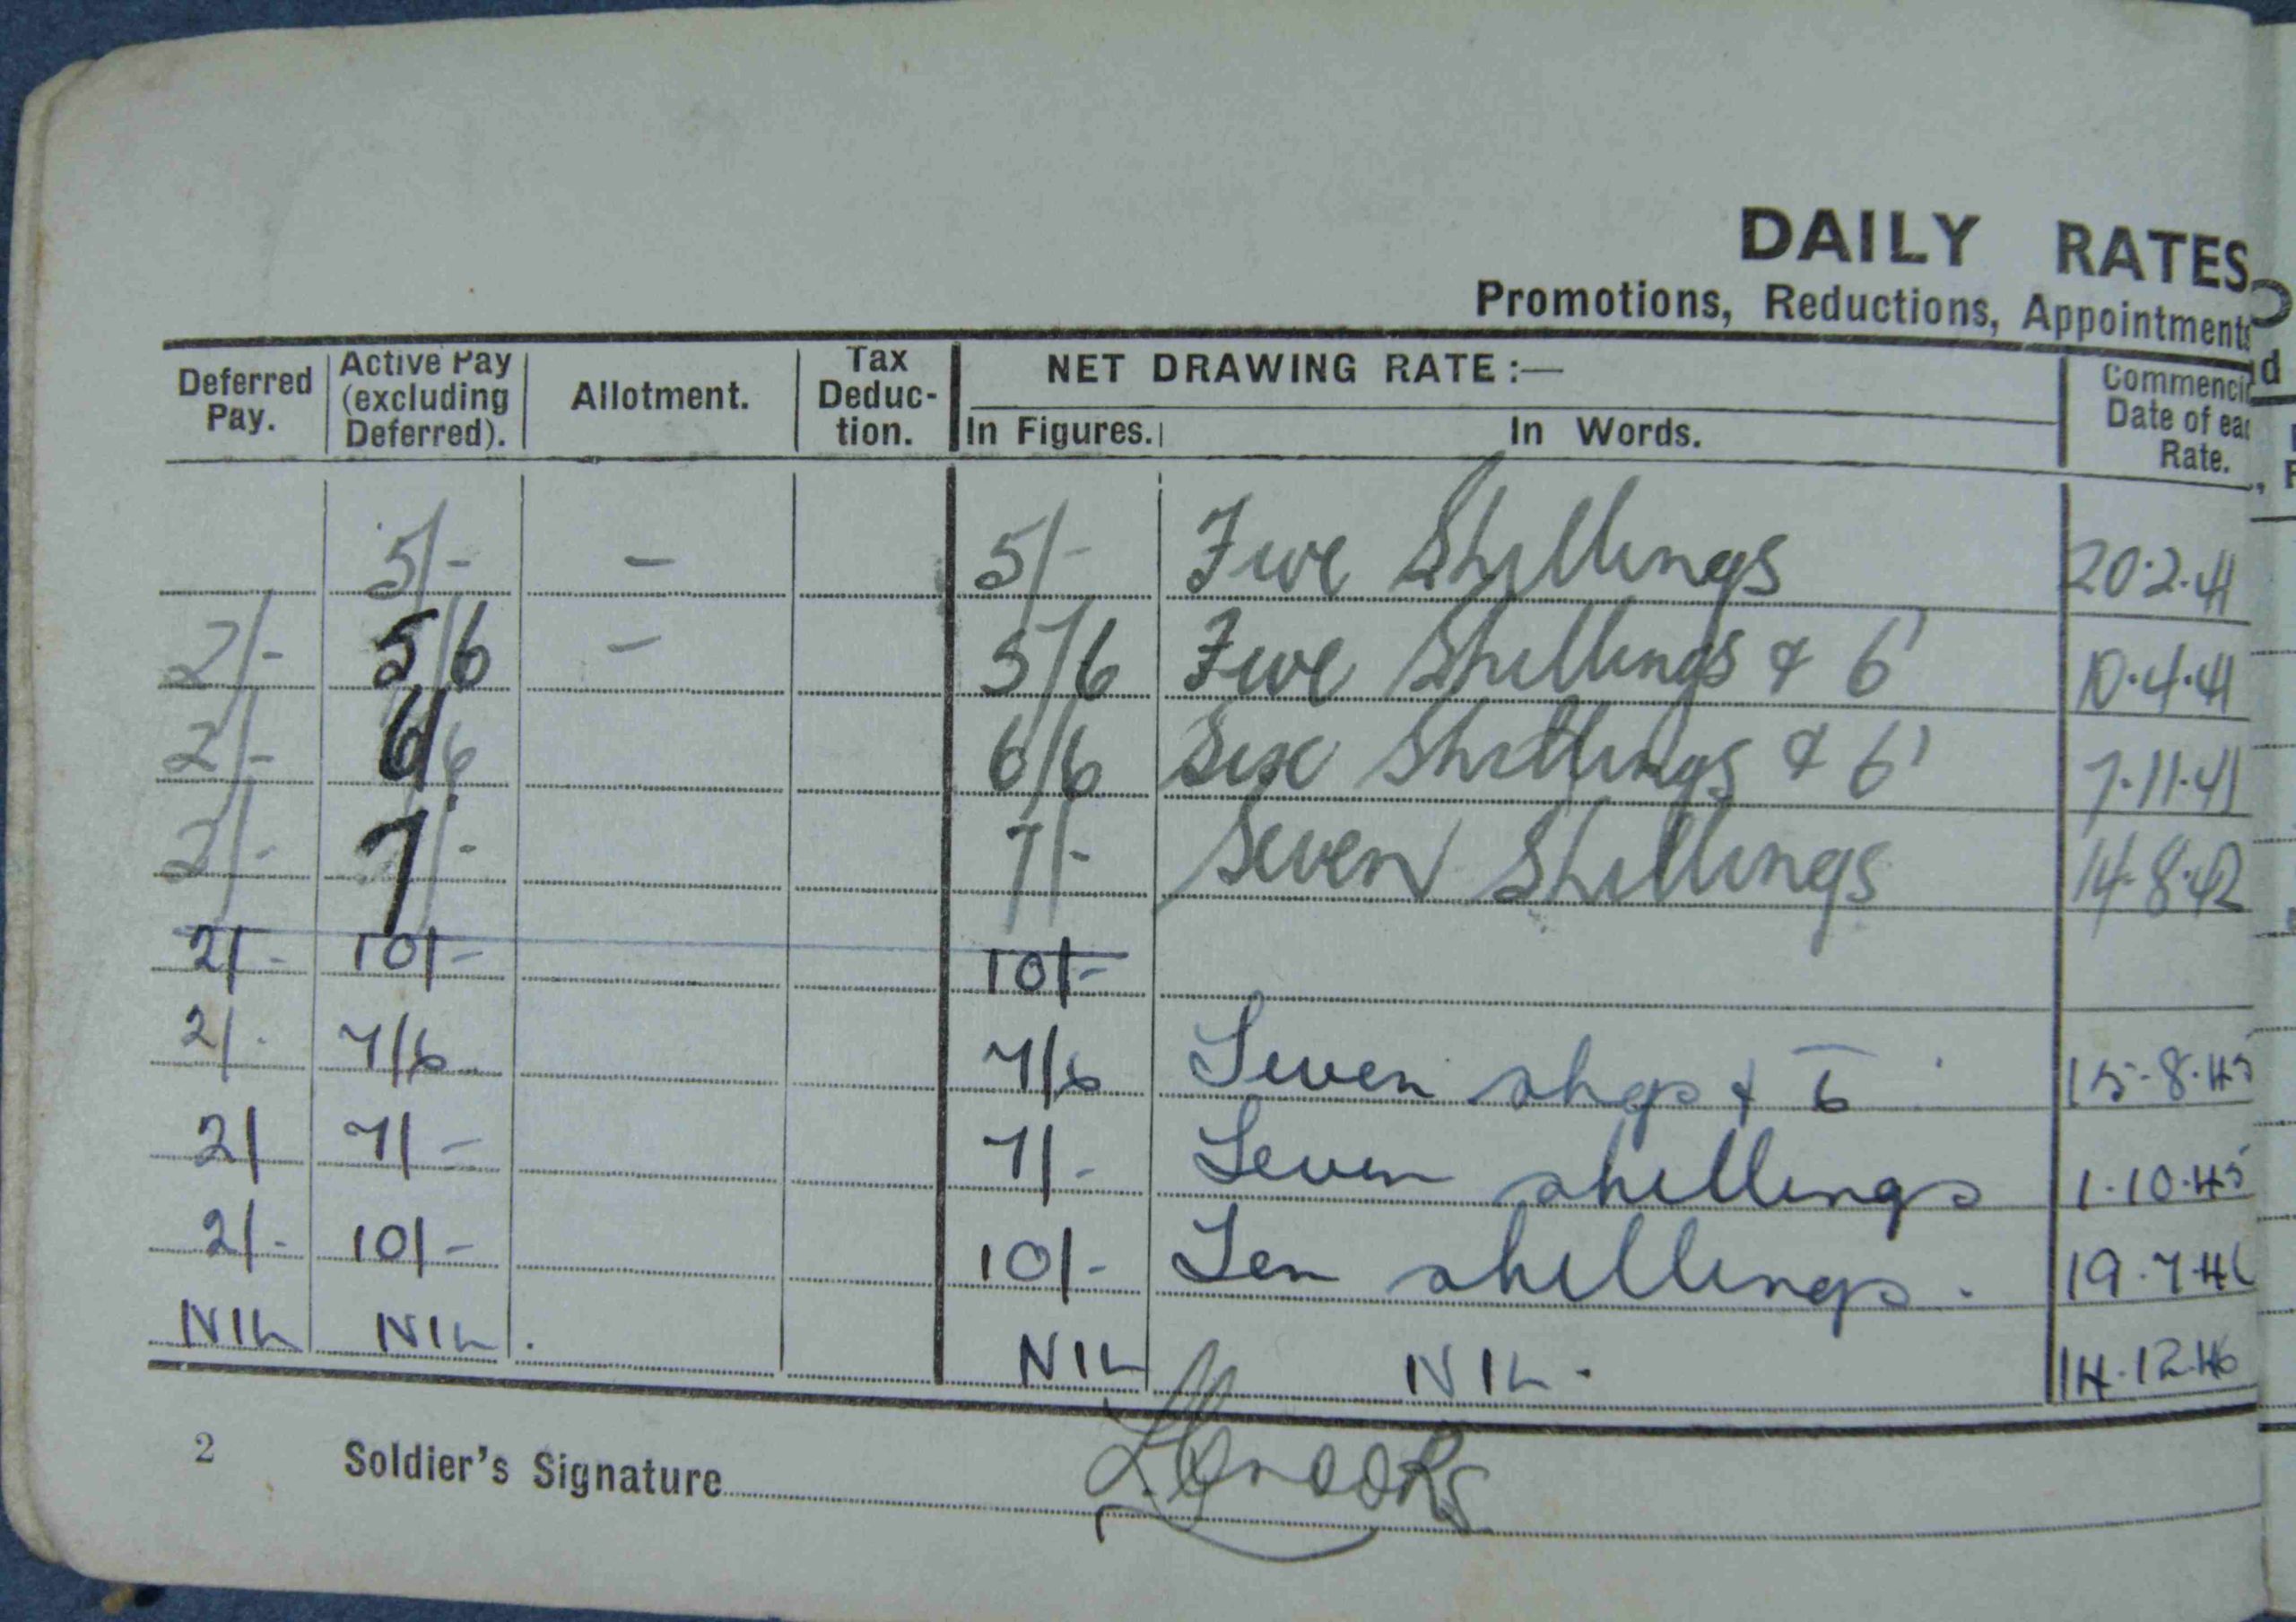 DAILY RATES
Promotions, Reductions, Appointments
Deferred Pay. Active Pay (excluding Deferred). Allotment. Tax Deduc-tion. NET DRAWING RATE :— In Figures. In Words. Commencing Date of each Rate.
5/- - 5/- Five Shillings 20.2.41
2/- 5/6 - 5/6 Five Shillings & 6' 10.4.41
2/- 6/6 6/6 Six Shillings & 6' 7.11.41
2/- 7/- 7/- Seven Shillings 14.8.42
2/- 10/- 10/-
2/- 7/6 7/6 Seven shgs & 6 15.8.45
2/ 7/- 7/- Seven shillings 1.10.45
2/- 10/- 10/- Ten shillings. 19.7.46
NIL NIL. NIL NIL. 14.12.46
2 Soldier's Signature